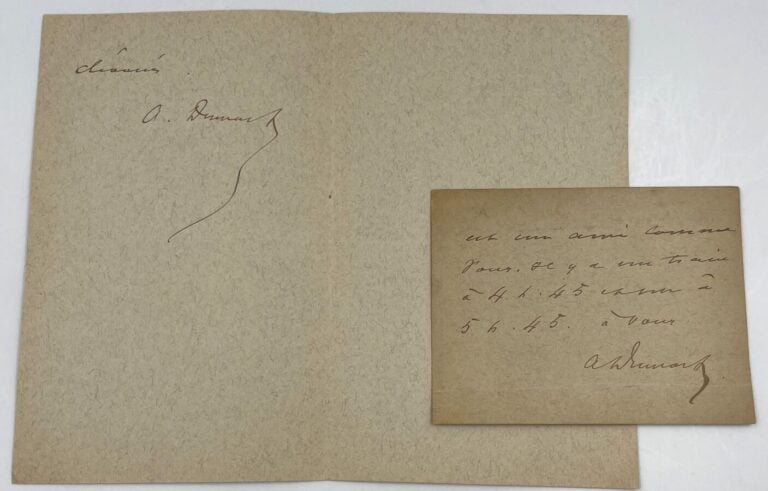 dévoué
A. Dumas f
est un ami comme
vous. Il y a un train
à 4 h. 45 et un à
5 h. 45. à vous
A Dumas f